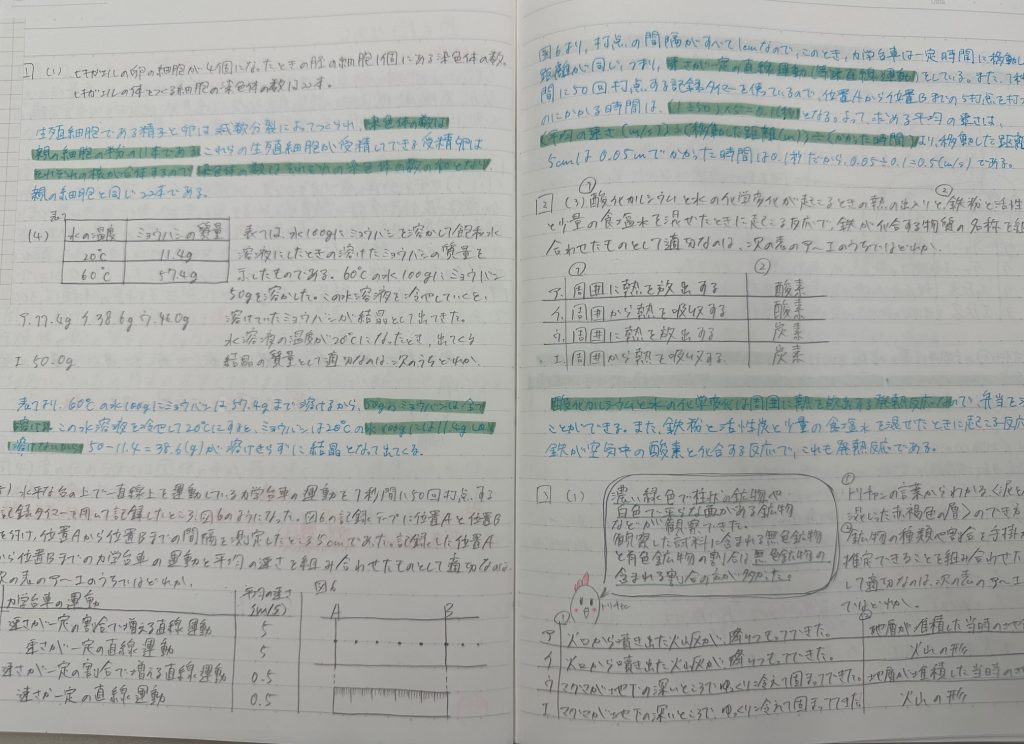 1 (1) ヒキガエルの卵の細胞が4個になったときの胚の細胞1個にある染色体の数。
ヒキガエルの体をつくる細胞の染色体の数は22本。
生殖細胞である精子と卵は減数分裂によってつくられ、染色体の数は
親の細胞の半分の11本である。これらの生殖細胞が受精してできる受精卵は
それぞれの核が合体するので、染色体の数はそれぞれの染色体の数の和となり
親の細胞と同じ22本である。
表1
(4) 水の温度 ミョウバンの質量
20℃ 11.4g
60℃ 57.4g
表1は、水100gにミョウバンを溶かして飽和水
溶液にしたときの溶けたミョウバンの質量を
示したものである。60℃の水100gにミョウバン
50gを溶かした。この水溶液を冷やしていくと、
溶けていたミョウバンが結晶として出てきた。
水溶液の温度が20℃になったとき、出てくる
結晶の質量として適切なのは、次のうちどれか。
ア.7.4g イ.38.6g ウ.46.0g
エ 50.0g
表1より、60℃の水100gにミョウバンは57.4gまで溶けるから、50gのミョウバンは全て
溶ける。この水溶液を冷やして20℃にすると、ミョウバンは20℃の水100gには11.4gしか
溶けないから 50-11.4=38.6(g)が溶けきらずに結晶となって出てくる。
水平な台の上で一直線上を運動している力学台車の運動を1秒間に50回打点する
記録タイマーを用いて記録したところ、図6のようになった。図6の記録テープに位置Aと位置B
を付け、位置Aから位置Bまでの間隔を測定したところ5cmであった。記録した位置A
から位置Bまでの力学台車の運動と平均の速さを組み合わせたものとして適切なのは、
次の表のア~エのうちではどれか。
力学台車の運動 平均の速さ(m/s)
速さが一定の割合で増える直線運動 5
速さが一定の直線運動 5
速さが一定の割合で増える直線運動 0.5
速さが一定の直線運動 0.5
図6
A B
図6より、打点の間隔がすべて1cmなので、このとき、力学台車は一定時間に移動し
距離が同じ、つまり、速さが一定の直線運動(等速直線運動)をしている。また、1秒
間に50回打点する記録タイマーを使っているので、位置Aから位置Bまでの5打点を打つ
のにかかる時間は、(1÷50)×5=0.1(秒)となる。よって、求める平均の速さは、
(平均の速さ(m/s))=(移動した距離(m))÷(かかった時間)より、移動した距離
5cmは0.05mでかかった時間は0.1秒だから、0.05÷0.1=0.5(m/s)である。
2 (3)①酸化カルシウムと水の化学変化が起こるときの熱の出入りと、②鉄粉と活性
と少量の食塩水を混ぜたときに起こる反応で、鉄が化合する物質の名称を組
合わせたものとして適切なのは、次の表のア~エのうちではどれか。
① ②
ア. 周囲に熱を放出する 酸素
イ. 周囲から熱を吸収する 酸素
ウ. 周囲に熱を放出する 炭素
エ. 周囲から熱を吸収する 炭素
酸化カルシウムと水の化学変化は周囲に熱を放出する発熱反応なので、弁当を
ことができる。また、鉄粉と活性炭と少量の食塩水を混ぜたときに起こる反応
鉄が空気中の酸素と化合する反応で、これも発熱反応である。
3 (1)
濃い緑色で柱状の鉱物や
白色で平らな面がある鉱物
などが観察できた。
観察した試料に含まれる無色鉱物
と有色鉱物の割合は無色鉱物の
含まれる割合の方が多かった。
トリチャン
①トリチャンの言葉からわかる、〈泥と
混じった赤褐色の層〉のでき方
②鉱物の種類や割合を手掛か
推定できることを組み合わせた
して適切なのは、次の表のア~エ
ではどれか。
① ②
ア 火口から噴き出た火山灰が、積もってできた。 地層が堆積した当時の
イ 火口から噴き出た火山灰が、積もってできた。 火山の形
ウ マグマが地下の深いところでゆっくり冷えて固まってできた。 地層が堆積した当時の
エ マグマが地下の深いところで、ゆっくり冷えて固まってできた 火山の形